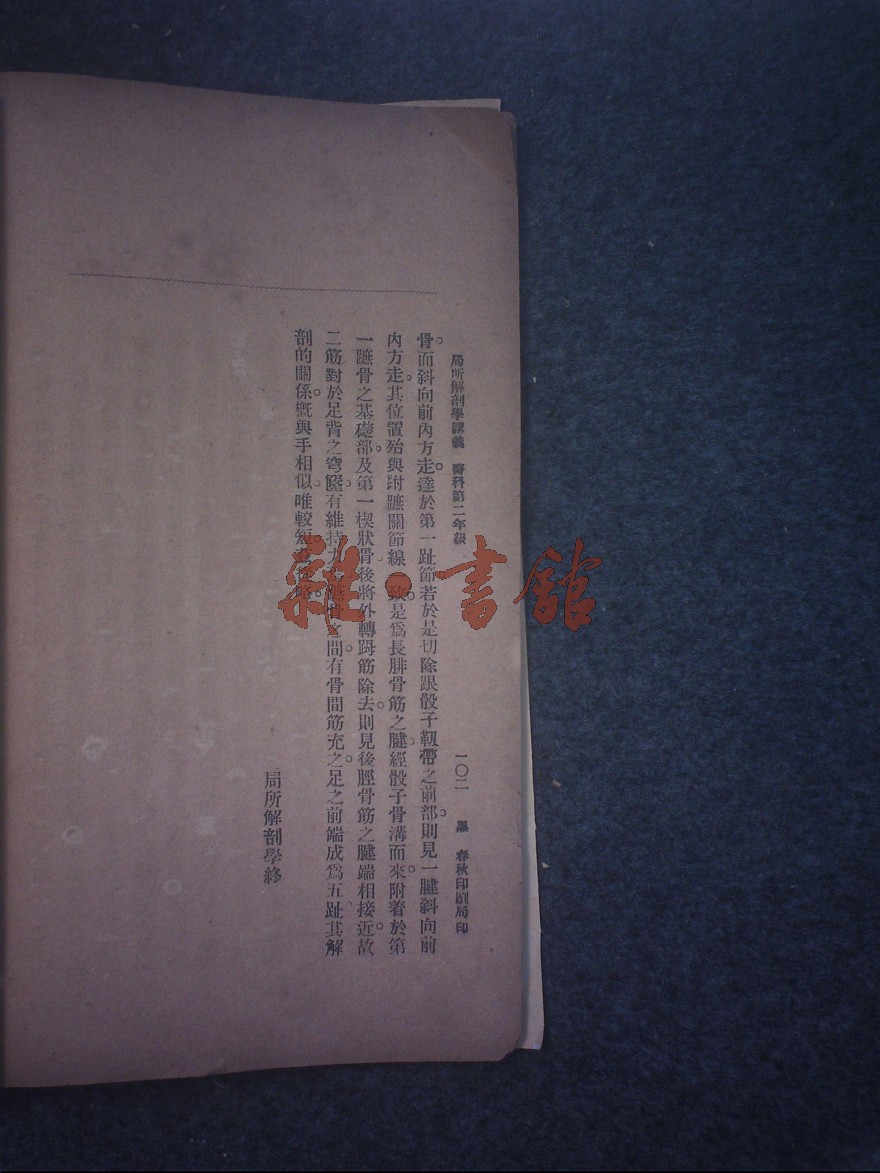 局所解剖學講義　醫科第二年級　一〇二　春秋印刷局印
骨。而斜向前內方走。達於第一趾節若於是切除跟骰子靱帶之前部。則見一腱斜向前
內方走。其位置殆與跗蹠關節線一致。是爲長腓骨筋之腱。經骰子骨溝而來。附着於第
一蹠骨之基礎部。及第一楔狀骨後將外轉䟕筋除去。則見後脛骨筋之腱端相接近。故
二筋對於足背之穹窿。有維持力。蹠骨之間。有骨間筋充之。足之前端成爲五趾。其解
剖的關係。概與手相似。唯較短
局所解剖學終
雜·書館